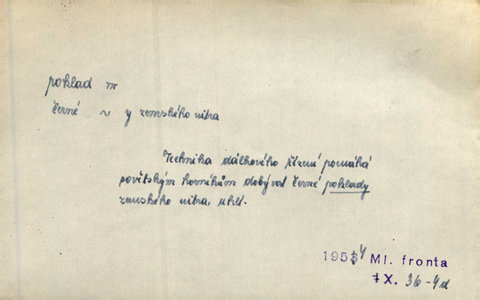 poklad m
černé ~ y zemského nitra
Technika dálkového řízení pomáhá
sovětským horníkům dobývat černé poklady
zemského nitra, uhlí.
1954 Ml. fronta
X. 36-4d